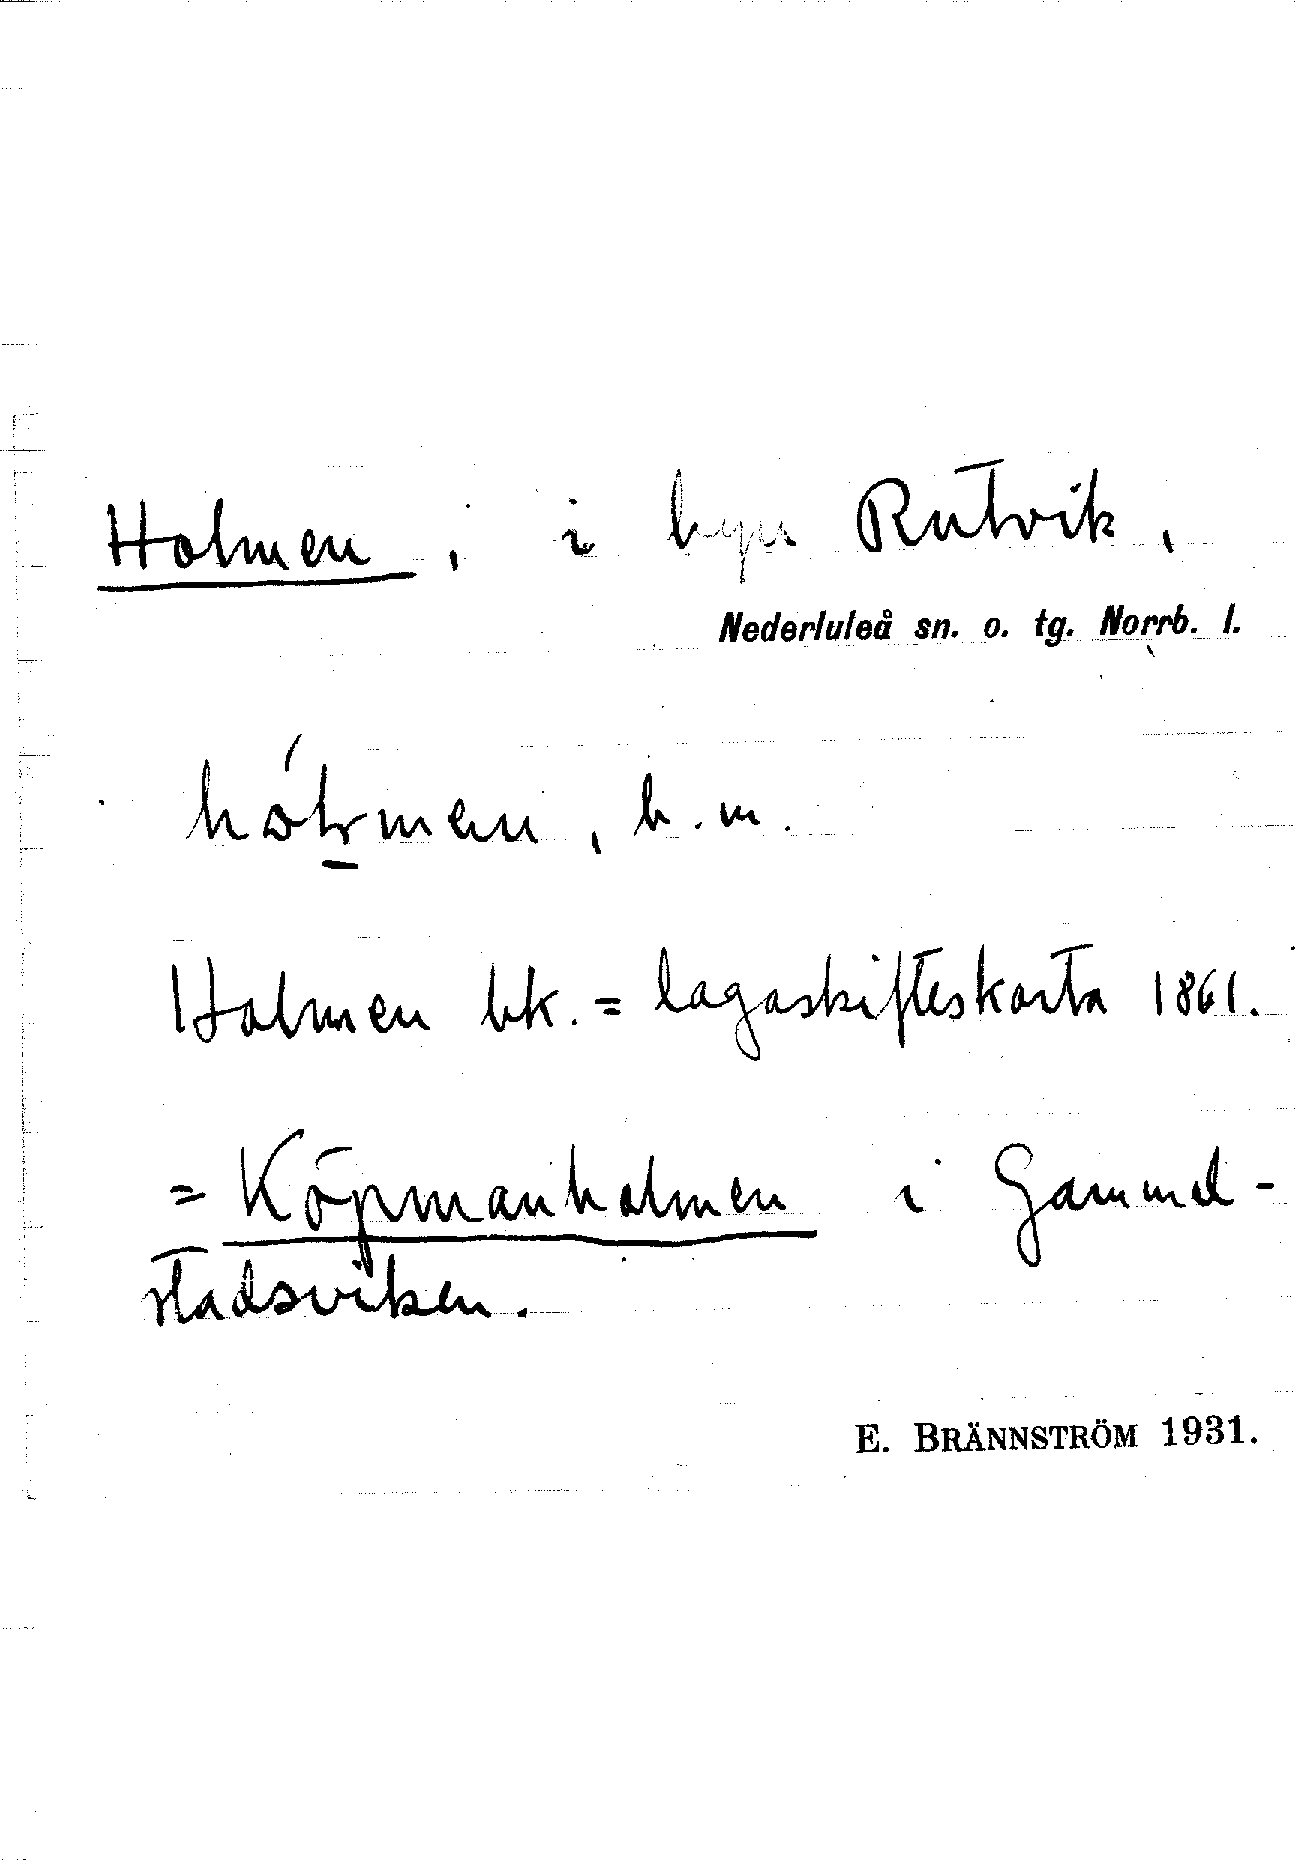 Holmen, i byn Rutvik,
Nederluleå sn. o. tg. Norrb. l.
b.m.
Holmen lk. = lagaskifteskarta 1861.
= Köpmanholmen i Gammel-
stadsviken.
E. BRÄNNSTRÖM 1931.